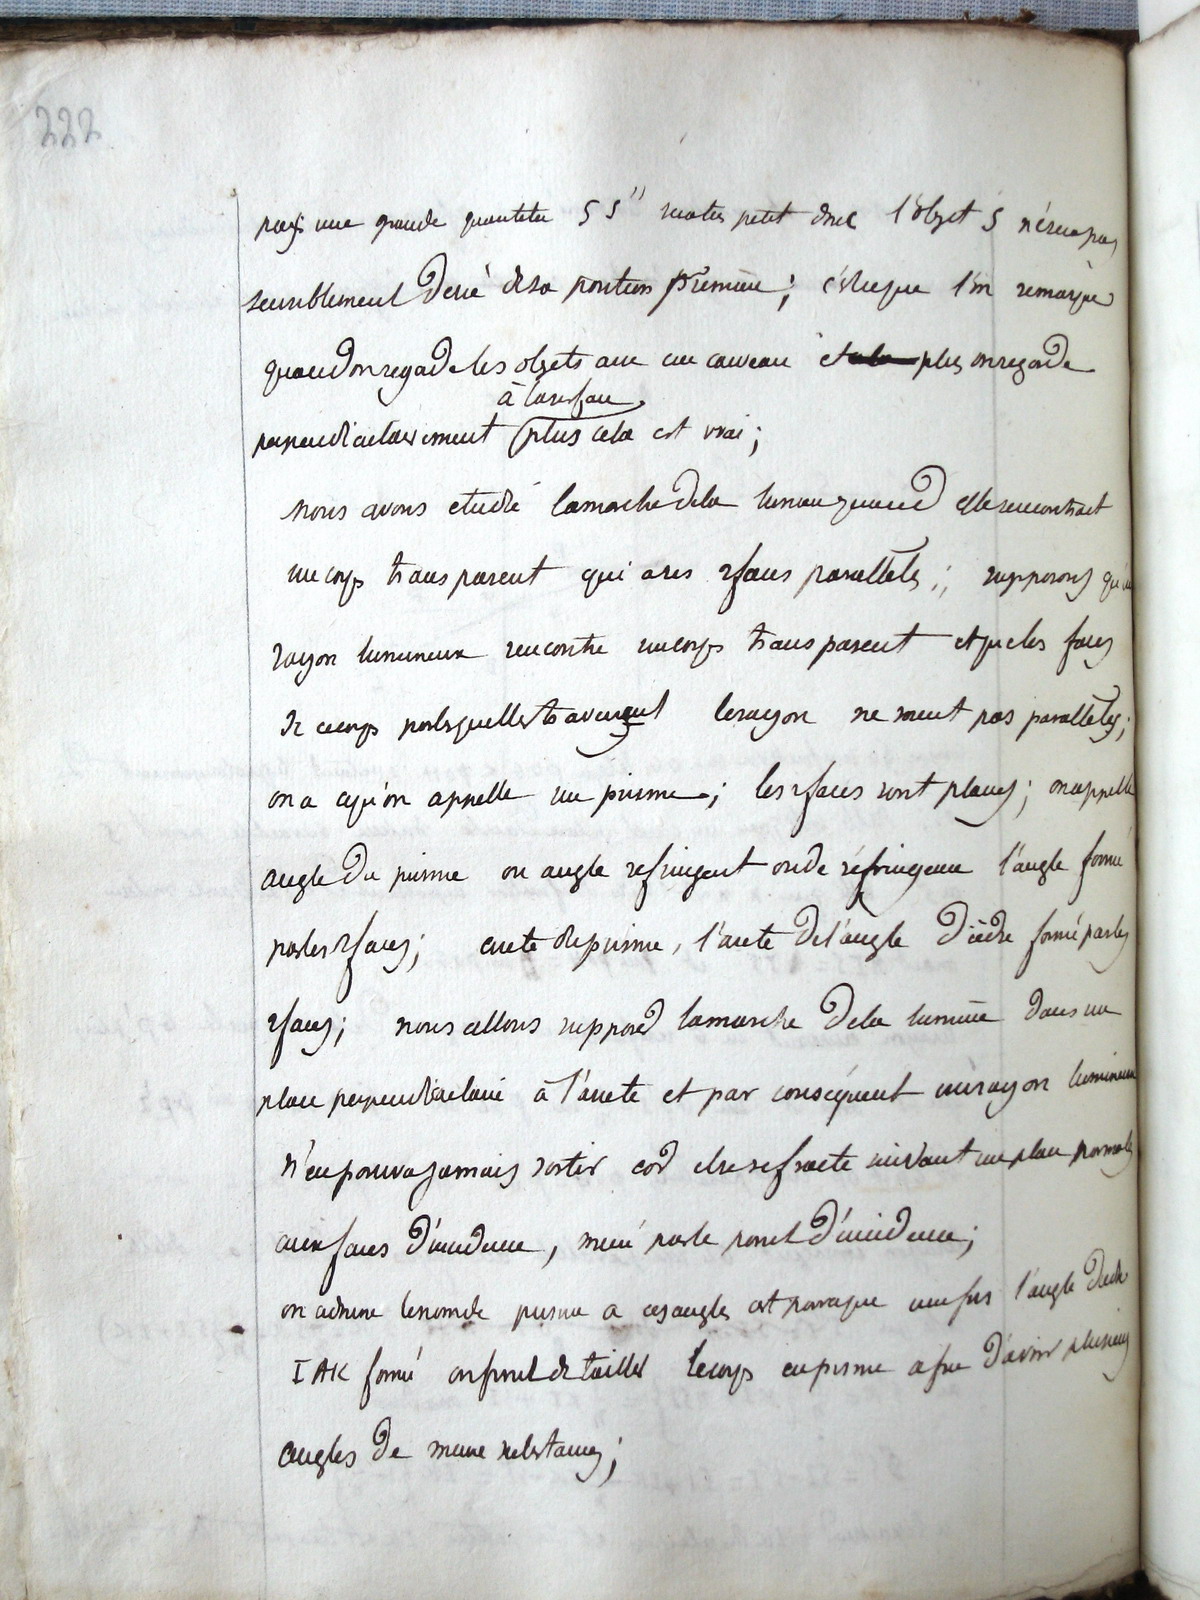 222
pas une grande quantité SS'' sera très petit donc l'objet S n'sera pas
sensiblement devié de sa position première; c'est ce que l'on remarque
quand on regarde les objets avec un carreau et plus on regarde
à la surface
perpendiculairement plus cela est vrai;
nous avons etudié la marche de la lumière quand elle rencontrait
un corps transparent qui a ses 2 faces parallèles; supposons qu'un
rayon lumineux rencontre un corps transparent et que les faces
de ce corps par lesquelles traversent le rayon ne soient pas parallèles;
on a ce qu'on appelle un prisme; les 2 faces sont planes; on appelle
angle du prisme ou angle refringent ou de réfringence l'angle formé
par les 2 faces; arete du prisme, l'arete de l'angle dièdre formé par les
2 faces; nous allons supposer la marche de la lumière dans un
plan perpendiculaire à l'arete et par conséquent un rayon lumineux
n'en pourra jamais sortir car il se refracte suivant un plan normal
aux faces d'incidence, mené par le point d'incidence;
on a donné le nom de prisme a ces angles parce que une fois l'angle
IAK formé on finit de tailler le corps en prisme afin d'avoir plusieurs
angles de meme substance;